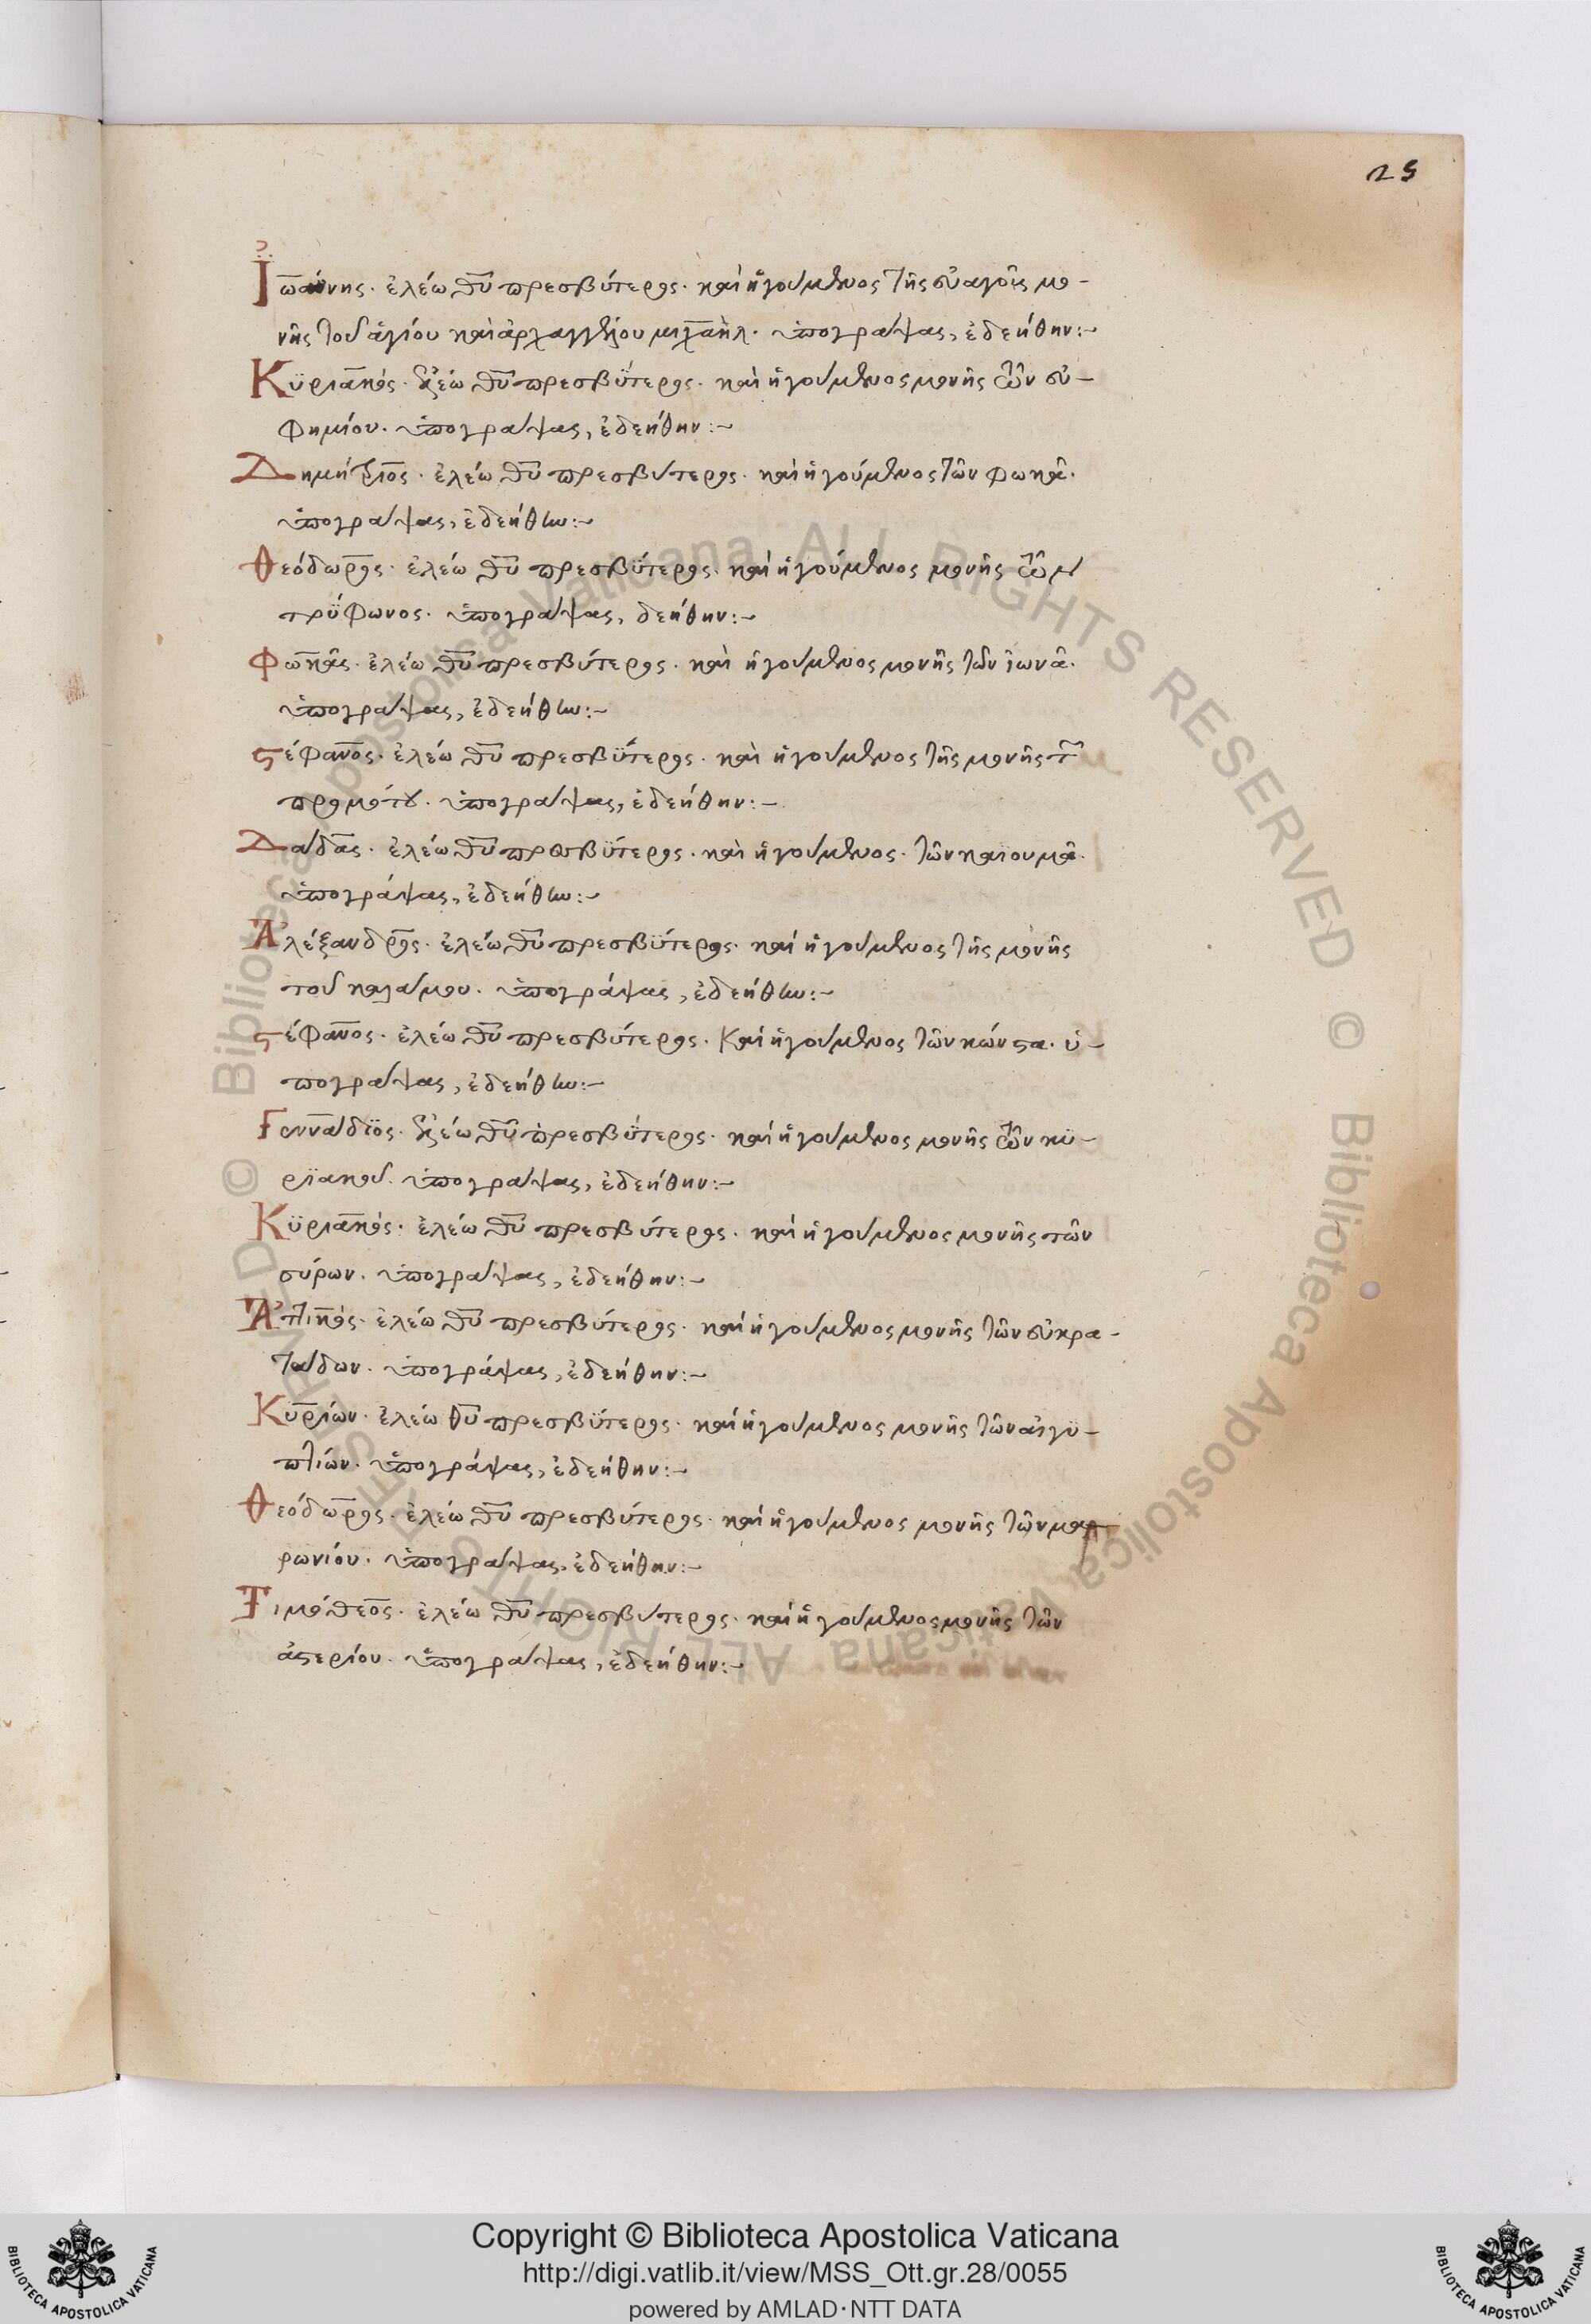 25
Ἰωάννης· ἐλέω θυ πρεσβύτερος· καὶ ἡγούμενος τῆς εὐαγοῦς μο-
νῆς τοῦ ἁγίου καὶ ἀρχαγγέλου μιχαὴλ· ὑπογράψας, ἐδεήθην:~
Κϋριακός· ἐλέω θυ πρεσβϋτερος· καὶ ἡγούμενος μονῆς τῶν εὐ-
φημίου· ὑπογράψας, ἐδεήθην:~
Δημήτριος· ἐλέω θυ πρεσβύτερος· καὶ ἡγούμενος τῶν φωκᾶ·
ὑπογράψας, ἐδεήθην:~
Θεόδωρος· ἐλέω θυ πρεσβϋτερος· καὶ ἡγούμενος μονῆς τῶν
τρϋφωνος· ὑπογράψας, δεήθην:~
Φωκᾶς· ἐλέω θυ πρεσβύτερος· καὶ ἡγούμενος μονῆς τῶν ἰωνᾶ·
ὑπογράψας, ἐδεήθην:~
Στέφανος· ἐλέω θυ πρεσβϋτερος· καὶ ἡγούμενος τῆς μονῆς τοῦ
προμότου· ὑπογράψας, ἐδεήθην:~
Δαΐδας· ἐλέω θυ πρεσβϋτερος· καὶ ἡγούμενος· τῶν καϊουμᾶ·
ὑπογράψας, ἐδεήθην:~
Ἀλέξανδρος· ἐλέω θυ πρεσβϋτερος· καὶ ἡγούμενος τῆς μονῆς
τοῦ καλάμου· ὑπογράψας, ἐδεήθην:~
Στέφανος· ἐλέω θυ πρεσβύτερος· Καὶ ἡγούμενος τῶν κώνστα· ὑ-
πογράψας, ἐδεήθην:~
Γενναΐδϊος· ἐλέω θυ πρεσβϋτερος· καὶ ἡγούμενος μονῆς τῶν κϋ-
ρϊακοῦ· ὑπογράψας, ἐδεήθην:~
Κϋριακός· ἐλέω θυ πρεσβύτερος· καὶ ἡγούμενος μονῆς τῶν
σύρων· ὑπογράψας, ἐδεήθην:~
Ἀττικός· ἐλέω θυ πρεσβύτερος· καὶ ἡγούμενος μονῆς τῶν εὐκρα-
τάδων· ὑπογράψας, ἐδεήθην:~
Κυρίων· ἐλέω θυ πρεσβϋτερος· καὶ ἡγούμενος μονῆς τῶν αἰγϋ-
πτίων· ὑπογράψας, ἐδεήθην:~
Θεόδωρος· ἐλέω θυ πρεσβύτερος· καὶ ἡγούμενος μονῆς τῶν μαρ
ρωνίου· ὑπογράψας, ἐδεήθην:~
Τιμόθεος· ἐλέω θυ πρεσβύτερος· καὶ ἡγούμενος μονῆς τῶν
ἀστερίου· ὑπογράψας, ἐδεήθην:~
© Biblioteca Apostolica Vaticana ALL RIGHTS RESERVED © Biblioteca Apostolica Vaticana ALL RIGHTS RESERVED
Copyright © Biblioteca Apostolica Vaticana
http://digi.vatlib.it/view/MSS_Ott.gr.28/0055
powered by AMLAD·NTT DATA
BIBLIOTECA APOSTOLICA VATICANA
BIBLIOTECA APOSTOLICA VATICANA